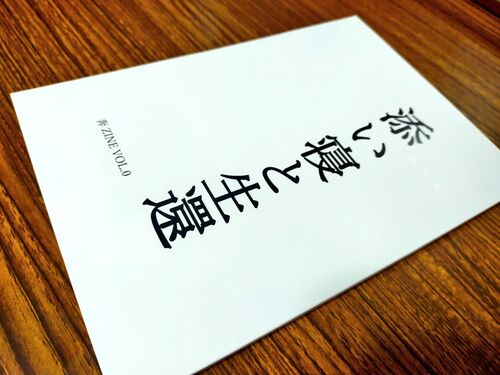 添い寝と生還
奔 ZINE VOL.0